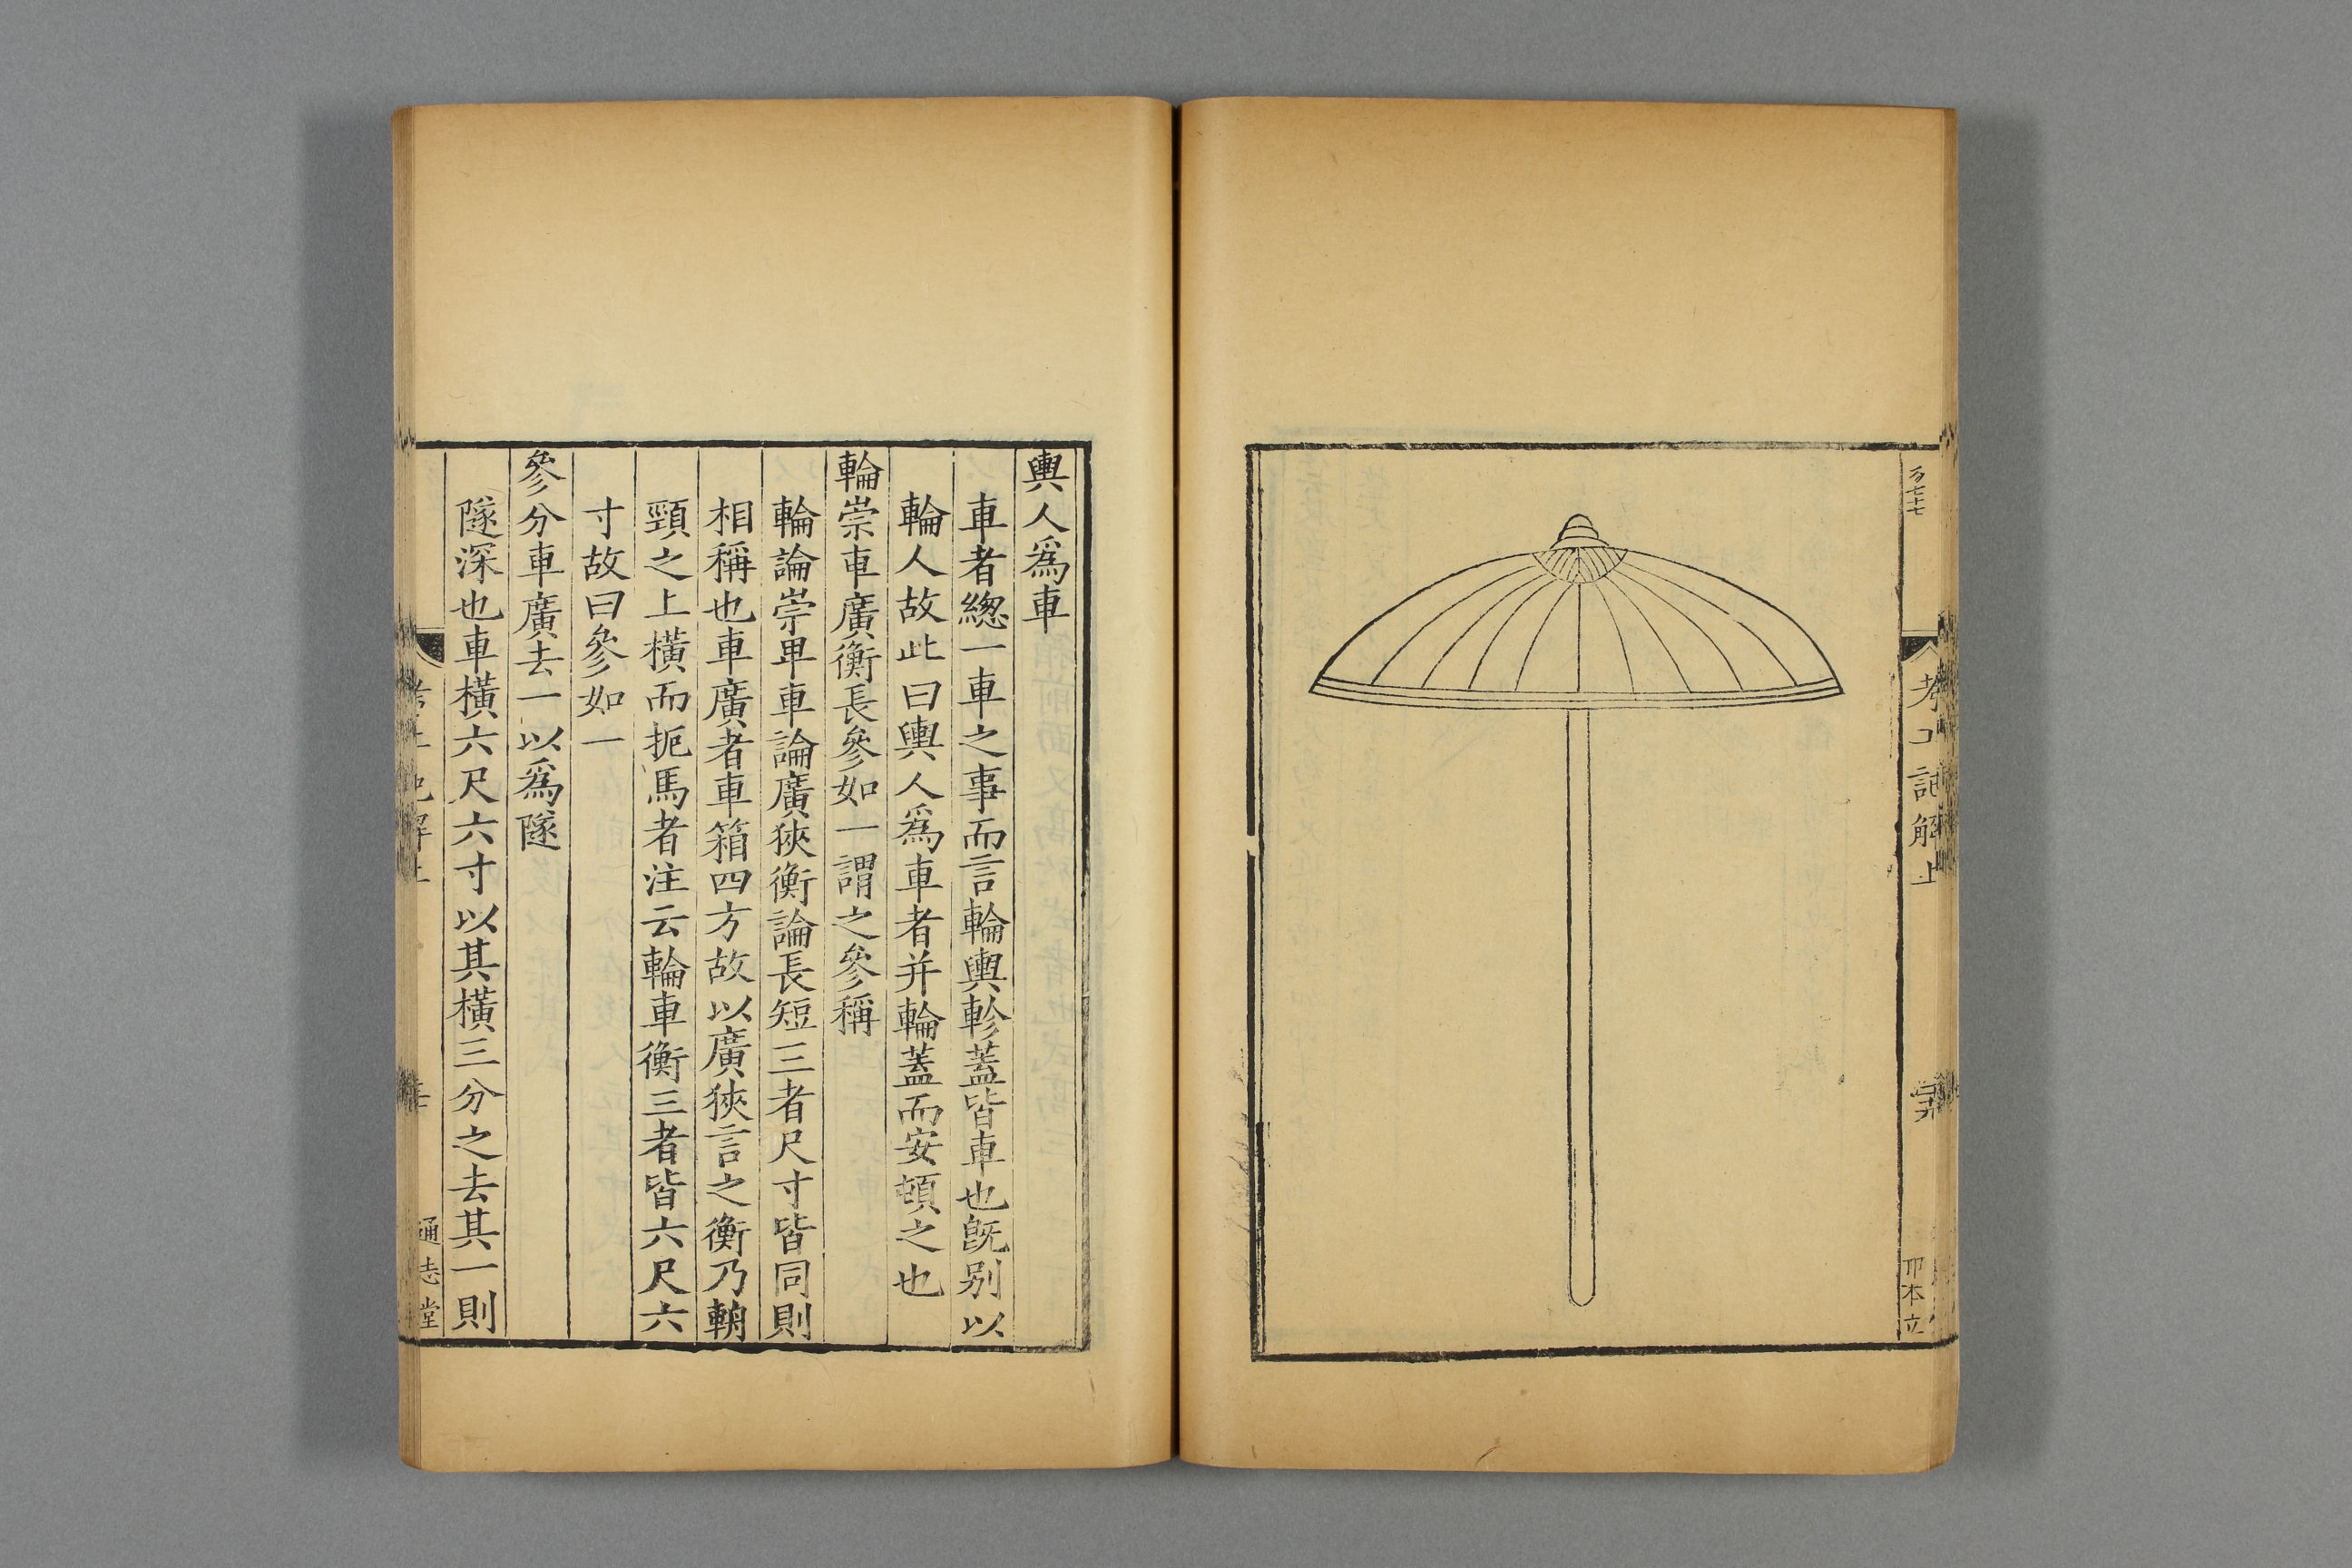 考工記解上
輿人爲車
車者緫一車之事而言輪輿軫蓋皆車也旣别以
輪人故此曰輿人爲車者并輪蓋而安頓之也
輪崇車廣衡長參如一謂之參稱
輪論崇卑車論廣狹衡論長短三者尺寸皆同則
相稱也車廣者車箱四方故以廣狹言之衡乃輈
頸之上橫而扼馬者注云輪車衡三者皆六尺六
寸故曰參如一
參分車廣去一以爲隧
隧深也車橫六尺六寸以其橫三分之去其一則
通志堂